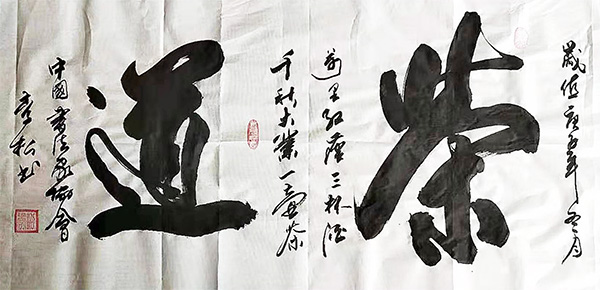 歲值庚子年
茶
萬里紅塵三杯酒
千秋大業一壺茶
道
中國書法家協會
李松书